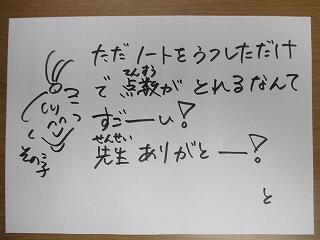 ただノートをうつしただけ
てんすう
で点数がとれるなんて
すごーい！
せんせい
先生ありがとー！
その子
と